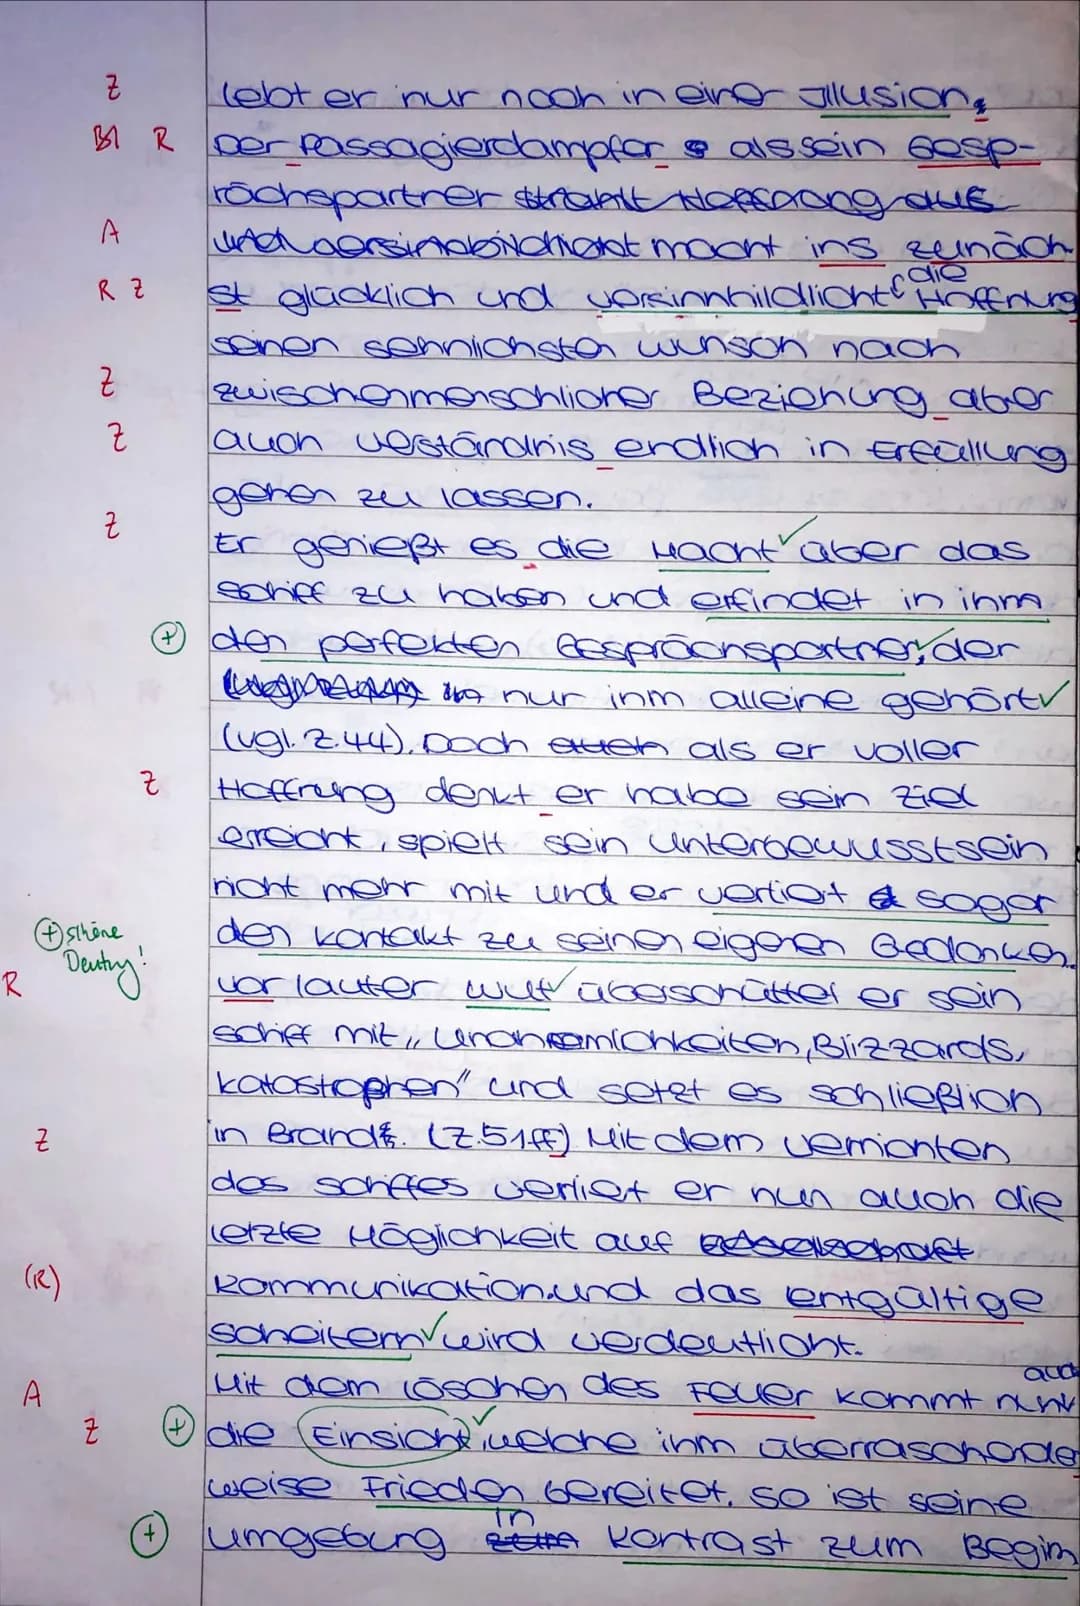 Z lebt er nur noch in einer Illusion.
Bl R Der Passagierdampfer als sein Gesp-
rächspartner strahlt Hoffnung aus
A und versinnbildlicht macht ins zunäch-
die
R Z st glücklich und versinnbildlicht Hoffnung
seinen sehnlichsten wunsch nach
Z zwischenmenschlicher Beziehung aber
Z auch verständnis endlich in Erfüllung
gehen zu lassen.
Z Er genießt es die Macht über das
schiff zu haben und erfindet in ihm
+ den perfekten Gesprächspartner, der
nur ihm alleine gehört
(vgl. Z.44). Doch auch als er voller
Z Hoffnung denkt er habe sein Ziel
erreicht, spielt sein Unterbewusstsein
nicht mehr mit und er verliert sogar
+ schöne Deutung! den kontakt zu seinen eigenen Gedanken.
R vor lauter wut überschüttet er sein
schiff mit „Unannemlichkeiten, Blizzards,
katastrophen" und setzt es schließlich
Z in Brand. (Z.51ff) Mit dem vernichten
des schiffes verliert er nun auch die
letzte Möglichkeit auf
(R) Kommunikation und das entgültige
scheitern wird verdeutlicht.
auch
A Mit dem löschen des Feuer kommt
Z + die Einsicht, welche ihm überraschende
weise Frieden bereitet. so ist seine
in
+ umgebung kontrast zum Beginn